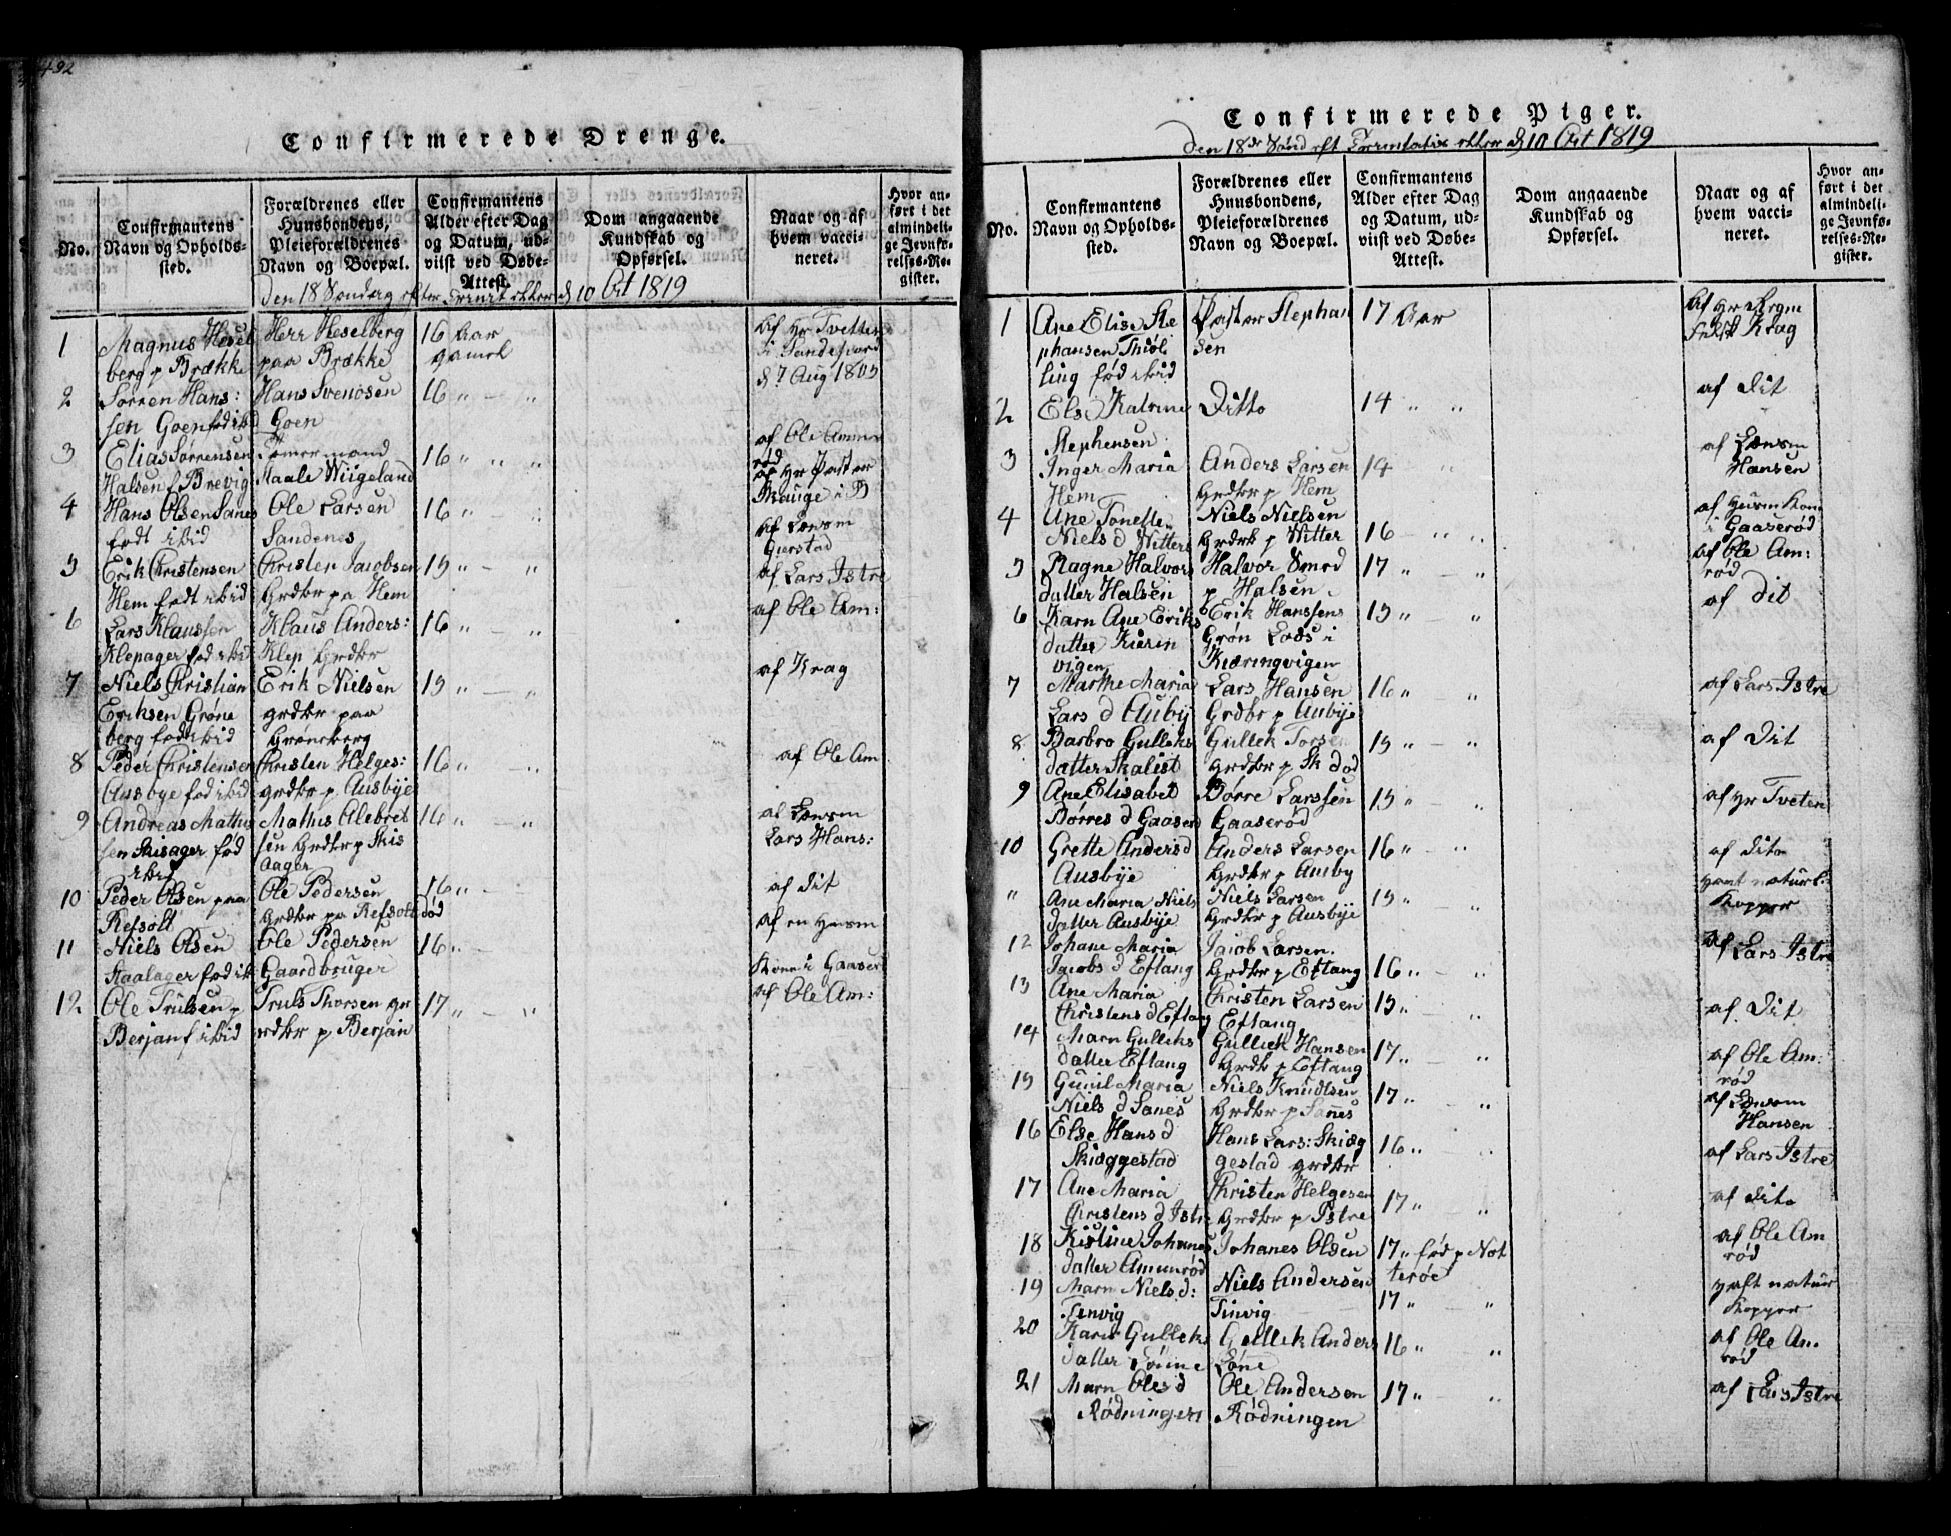 432
Confirmerede Drenge.
No.
Confirmantens
Navn og Opholds-
sted.
Forældrenes eller
Huusbondens,
Pleieforældrenes
Navn og Boepæl.
Confirmantens
Alder efter Dag
og Datum, ud-
viist ved Døbe-
Attest.
Dom angaaende
Kundskab og
Opførsel.
Naar og af
hvem vacci-
neret.
Hvor an-
ført i det
almindeli-
ge Jevnfø-
relses-Re-
gister.
Den 18 Søndag efter Trinit 10 Oct 1819
1
Magnus Hesel
berg p Brække
Herr Heselberg
paa Brække
16 Aar
gamel
Af Hr Tvetten
i Sandefiord
d 7 Aug
2
Sørren Hans:
sen Goen
Hans Svenosen
Goen
16 " - "
af Ole Amme
rød
3
Elias Sørrensen
Halsen f Brevig
Tømermand
Staale Wiigeland
16 " " "
af Hr Paster
Skauge i B
4
Hans Olsen Sanes
født
Ole Larsen
Sandenes
16 " - "
af
Gierstad
5
Erik Christensen
Hem født
Christen Jacobsen
Grdbr pa Hem
15 " - "
af Lars Istre
6
Lars Klaussen
Klepager fød
Klaus Anders:
Klep Grdbr
16 " - "
af Ole Am:
7
Niels Christian
Eriksen Grøne
berg fød
Erik Nielsen
grdbr paa
Groneberg
15 " - "
af Krag
8
Peder Christensen
Ausbye fød
Christen Helges:
grdbr p. Ausbye
16 " "
af Ole Am
9
Andreas Mathis
sen Skisager fød
Mathis Alebret
sen Grdbr p Skis
aager
16 " - "
af Lensm
Lars Hans:
10
Peder Olsen paa
Refsolt
Ole Pedersen
Grdbr pa Refsolt død
16 " -
af dit
11
Niels Olsen
Staalager fød
Ole Pedersen
Gaardbruger
16 " -
af en Huusm
Kone i Gaaser
12
Ole Trulsen p
Berjan f
Truls Thorsen gr
rdbr p Berjan
17 " - "
af Ole Am:
Confirmerede Piger.
Den 18de Sønd eft Trinitatis 10 Oct 1819
No.
Confirmantens
Navn og Opholds-
sted.
Forældrenes eller
Huusbondens,
Pleieforældrenes
Navn og Boepæl.
Confirmantens
Alder efter Dag
og Datum, ud-
viist ved Døbe-
Attest.
Dom angaaende
Kundskab og
Opførsel.
Naar og af
hvem vacci-
neret.
Hvor an-
ført i det
almindeli-
ge Jevnfø-
relses-Re-
gister.
1
Ane Elise Ste
phansen Thiøl
ling fød
Paster Stephan
sen
17 Aar
Af Hr
Krag
2
Else Katrine
Stephensen
Ditto
14 " "
af Dit
3
Inger Maria
Hem
Anders Larsen
Grdbr p Hem
14 "
af Lensm
Hansen
4
Ane Tonette
Niels d Witters
Niels Nielsen
Grdbr p Witter
16 - " "
af Huusm Kone
i Gaaserød
5
Ragne Halvors
datter Halsen
Halvor Smed
p Halsen
17 " - "
af Ole Am:
rød
6
Karn Ane Eriks
datter Kierin
vigen
Erik Hanssens
Grøn Lods i
Kiæringvigen
15 " "
af dit
7
Marthe Maria
Lars d Auby
Lars Hansen
Grdbr p Aubye
16 " "
af Lars Istre
8
Barbro Gulleks
datter Skalist
Gullek Torsen
grdbr p Sk død
15 " - "
af Dit
9
Ane Elisabet
Børres d Gaaserd
Børre Larssen
Gaaserød
15 " "
af Hr Tveten
10
Grette Andersd
Ausbye
Anders Larsen
Grdbr p Ausby
16 " - "
af dito
"
Ane Maria Niels
datter Ausbye
Niels Larsen
Grdbr p Ausbye
15 " "
haft naturl:
Kopper
12
Johane Maria
Jacobs d Eftang
Jacob Larsen.
Grdbr p Eftang
16 " - "
af Lars Istre
13
Ane Maria
Christens d Eftang
Christen Larsen
Eftang
15 " "
af Dit
14
Marn Gulleks
datter Eftang
Gullick Hansen
Grdbr p Eftang
17 " - "
af Ole Am:
rød
15
Gunil Maria
Niels d Sanes
Niels Knudtsen
Grdbr p Sannes
17 " "
af Lensm
Hansen
16
Else Hans d
Skiæggestad
Hans Lars: Skiæg
gestad grdbr
16 " - "
af Lars Istre
17
Ane Maria
Christens d Istre
Christen Helgesen
Grdbr p Istre
17 " "
af dito
18
Kistine Johanes
datter Amunrød
Johanes Olsen
17 " fød p Not
terøe
af Ole Am
rød
19
Marn Niels d:
Tinvig
Niels Andersen
Tinvig
17 " "
haft natur
Kopper
20
Karn Gulleks
datter Lønne
Gullek Anders
Løne
16 " "
af Ole Am.
rød
21
Marn Oles d
Rødningen
Ole Andersen
Rødningen
17 " "
af Lars Istre